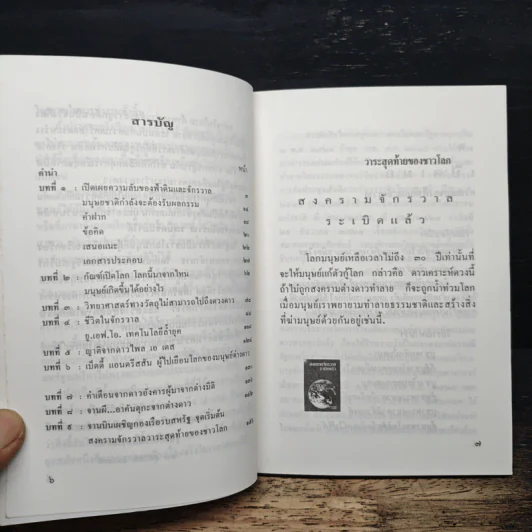 สารบัญ
หน้า
คำนำ
บทที่ ๑ : เปิดเผยความลับของฟ้าดินและจักรวาล
มนุษยชาติกำลังจะต้องรับผลกรรม
คำฝาก
ข้อคิด
เสนอแนะ
เอกสารประกอบ
บทที่ ๒ : กัณฑ์เปิดโลก โลกนี้มาจากไหน
มนุษย์เกิดขึ้นได้อย่างไร
บทที่ ๓ : วิทยาศาสตร์ทางวัตถุไม่สามารถไปถึงดวงดาว
บทที่ ๔ : ชีวิตในจักรวาล
ยู.เอฟ.โอ. เทคโนโลยีล้ำยุค
บทที่ ๕ : ญาติจากดาวไพล เอ เดส
บทที่ ๖ : เบ็ตตี้ แอนดรีสสัน ผู้ไปเยือนโลกของมนุษย์ต่างดาว
บทที่ ๗ : คำเตือนจากดาวอังคารผู้มาจากต่างมิติ
บทที่ ๘ : จานผี...อาคันตุกะจากต่างดาว
บทที่ ๙ : จานบินเผชิญกองเรือรบสหรัฐ จุดเริ่มต้น
สงครามจักรวาลวาระสุดท้ายของชาวโลก
๖
วาระสุดท้ายของชาวโลก
สงครามจักรวาล
ระเบิดแล้ว
โลกมนุษย์เหลือเวลาไม่ถึง ๓๐ ปีเท่านั้นที่
จะให้มนุษย์แก้ตัวกู้โลก กล่าวคือ ดาวเคราะห์ดวงนี้
ถ้าไม่ถูกสงครามต่างดาวทำลาย ก็จะถูกน้ำท่วมโลก
เมื่อมนุษย์เราพยายามทำลายธรรมชาติและสร้างสิ่ง
ที่ฆ่ามนุษย์ด้วยกันอยู่เช่นนี้.
๗